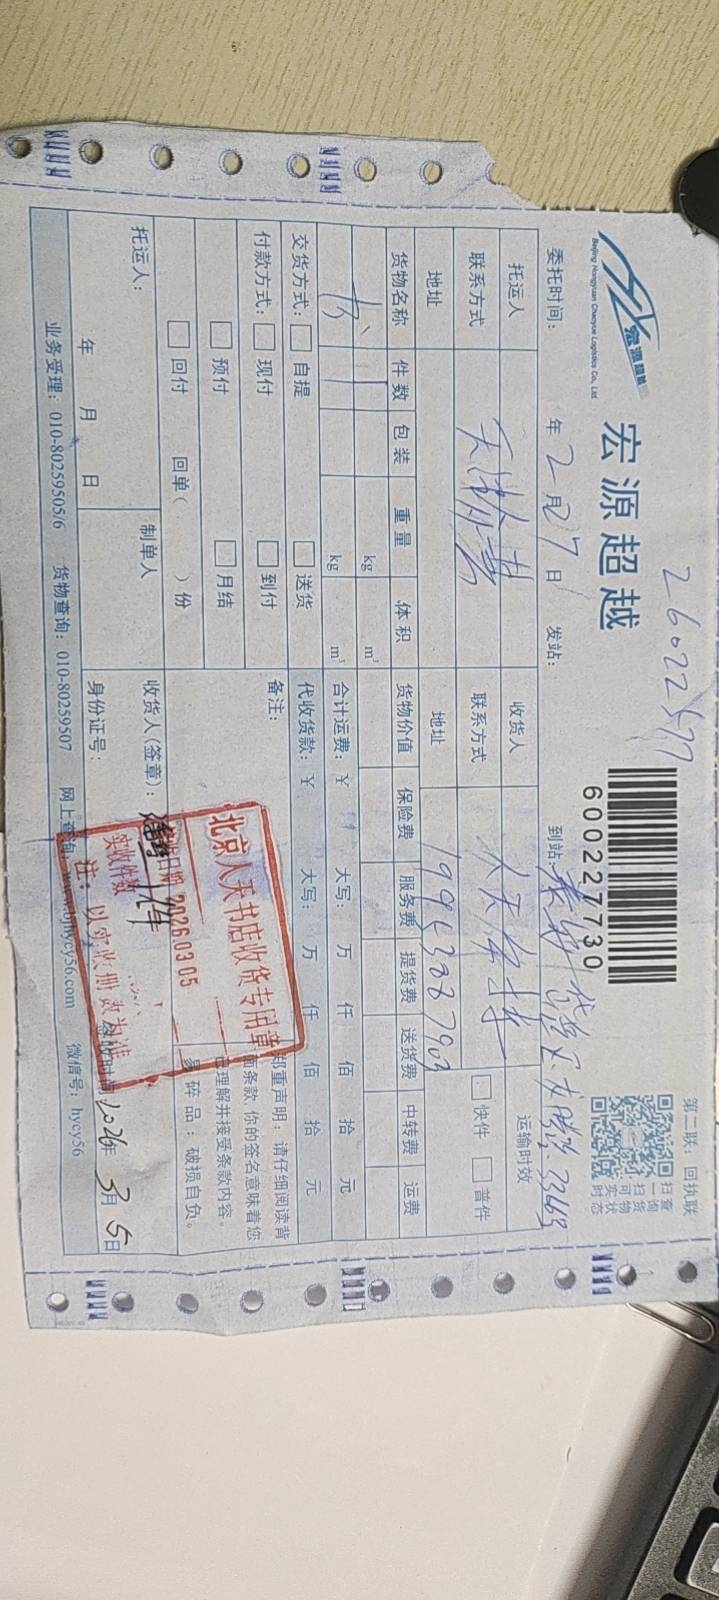 宏源超越
Beijing Hongyuan Chaoyue Logistics Co., Ltd.
宏源超越
600227730
第二联：回执联
扫一扫
查询货物
可实时状态
委托时间： 年 2月27日 发站： 到站：
托运人
联系方式
地址
收货人
联系方式
地址
运输时效
快件 普件
货物名称 件数 包装 重量 体积 货物价值 保险费 服务费 提货费 送货费 中转费 运费
书 kg m³
kg m³ 合计运费：￥ 大写： 万 仟 佰 拾 元
交货方式： 自提 送货 代收货款：￥ 大写： 万 仟 佰 拾 元
付款方式： 现付 到付
预付 月结
回付 回单（ ）份
备注：
郑重声明：请仔细阅读背
面条款，你的签名意味着您
已理解并接受条款内容。
易碎品：破损自负。
北京人天书店收货专用章
收货日期 2026.03.05
实收件数
注：以实收册数为准
托运人：
年 月 日
制单人
收货人（签章）：
身份证号：
签收时间：2026年3月5日
业务受理：010-80259505/6 货物查询：010-80259507 网上查询：www.bjhycy56.com 微信号：hycy56